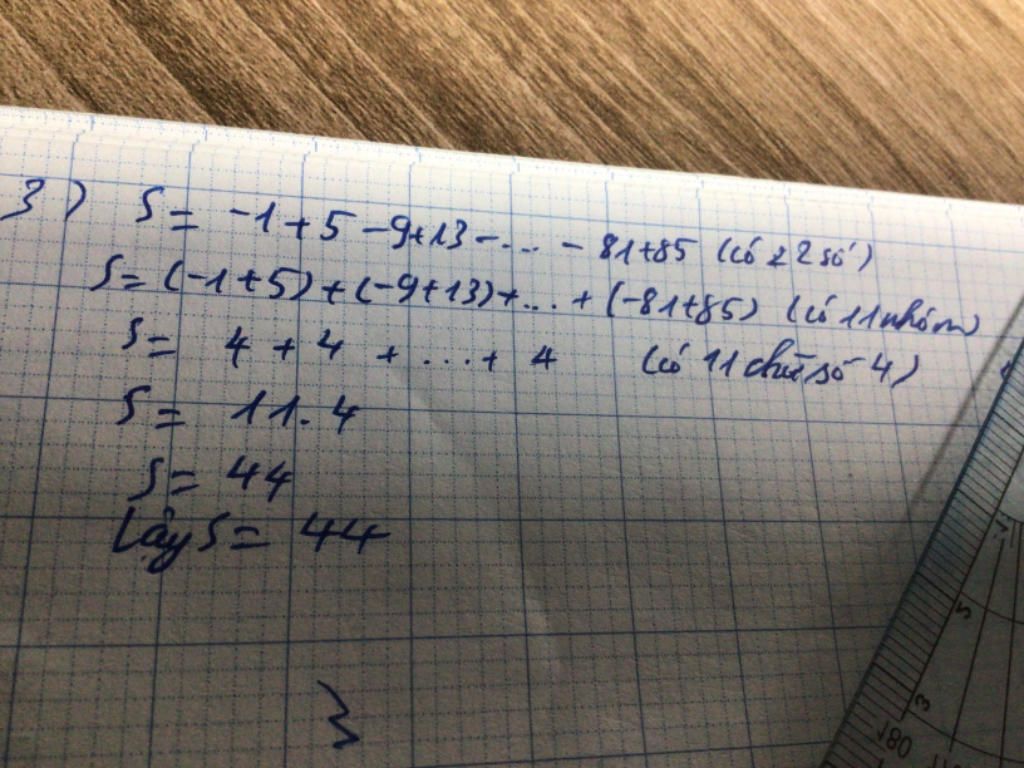 3) S = -1 + 5 - 9 + 13 - ... - 81 + 85 (có 22 số)
S = (-1 + 5) + (-9 + 13) + ... + (-81 + 85) (có 11 nhóm)
S = 4 + 4 + ... + 4 (có 11 chữ số 4)
S = 11 . 4
S = 44
Vậy S = 44
5
3
180